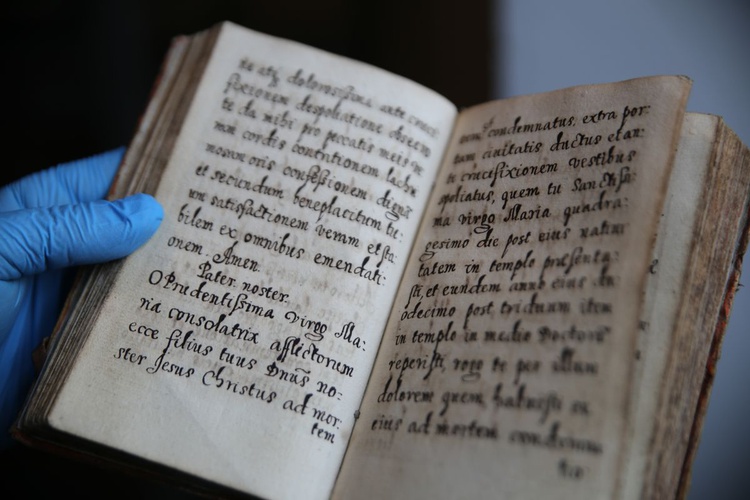 tu atq dolorosissima ante cruci
fixionem despoliatione obsecro
te da mihi pro peccatis meis in
mni cordis contritionem lachri
mosam oris confessionem dignã
et secundum beneplacitum tu:
um satisfactionem veram et sta:
bilem ex omnibus emendati:
onem. Amen.
Pater noster.
O Prudentissima virgo Ma:
ria consolatrix afflictorum
ecce filius tuus Dnũs no:
ster Jesus Christus ad mor:
tem
condemnatus, extra por:
tam civitatis ductus et an:
te crucifixionem vestibus
spoliatus, quem tu Sanctissi:
ma virgo Maria quadra:
gesimo die post eius nativi
tatem in templo præsenta:
sti, et eundem anno eius du
odecimo post triduum item
in templo in medio Doctorũ
reperisti, rogo te per illum
dolorem quem habuisti in
eius ad mortem